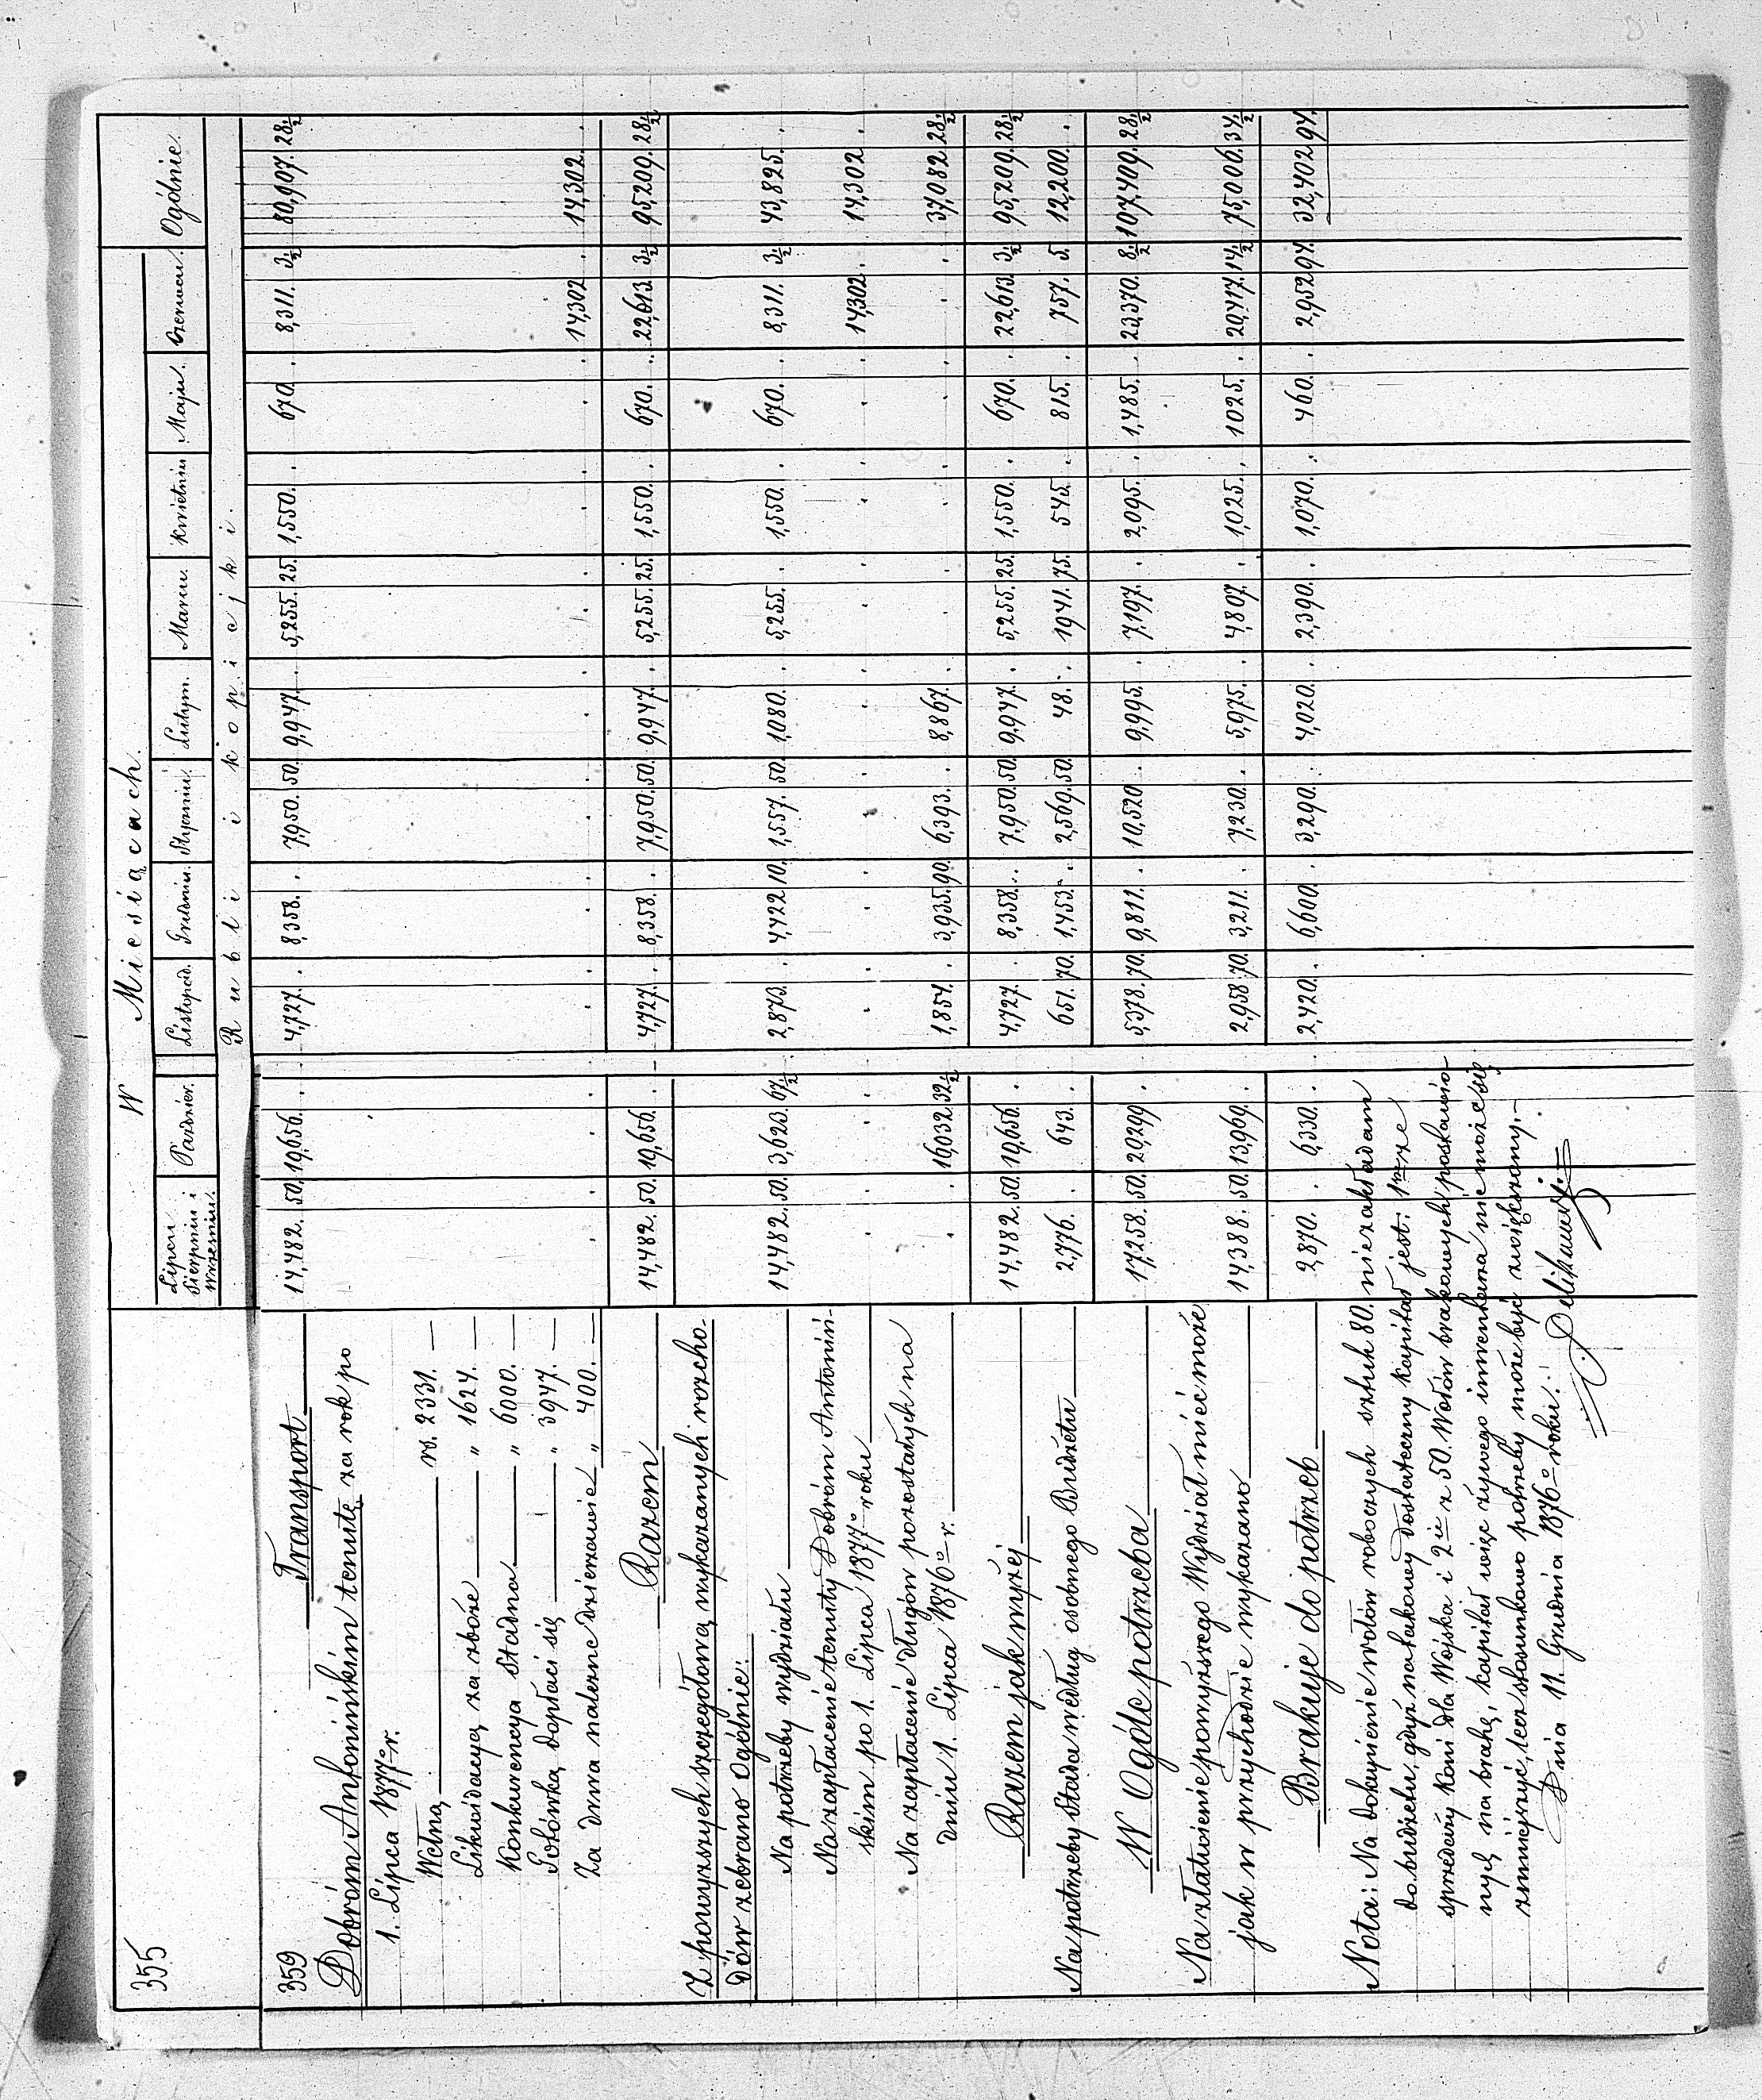 355
W Miesiącach.
Lipcu Sierpniu i Wrześniu. Paździer. Listopad. Grudniu. Styczniu. Lutym. Marcu. Kwietniu Maju. Czerwcu. Ogólnie.
Rubli i kopiejki.
359 Transport 14,482. 50. 19,656. . 4,727. . 8,358. . 7,950. 50. 9,947. . 5,255. 25. 1,550. . 670. . 8,311. 3½ 80,907. 28½
Dobróm Antonińskim tenutę za rok po
1. Lipca 1877º r.
Wełną rs. 2331. —
Likwidacyą za zboże „ 1624. —
Konkurencya Stadna „ 6000. —
Gotówką dopłaci się „ 3947. —
Za drwa należne dzierżawie „ 400. — . . . . . . . . . 14,302. . 14,302. .
Razem 14,482. 50. 19,656. . 4,727. . 8,358. . 7,950. 50. 9,947. . 5,255. 25. 1,550. . 670. . 22,613. 3½ 95,209. 28½
Z powyższych szczegółową wykazanych rozcho-
dów zebrano Ogólnie:
Na potrzeby wydziału 14,482. 50. 3,623. 67½ 2,873. . 4,422 10. 1,557. 50. 1,080. . 5,255. . 1,550. . 670. . 8,311. 3½ 43,825. .
Na zapłacenie tenuty Dobróm Antoniń-
skim po 1. Lipca 1877º roku . . . . . . . . . 14,302. 14,302. .
Na zapłacenie długów pozostałych na
dniu 1. Lipca 1876º r. . 16,032 32½ 1,854. . 3,935. 90. 6,393. . 8,867. . . . . 37,082. 28½
Razem jak wyżej 14,482. 50. 19,656. . 4,727. . 8,358. . 7,950. 50. 9,947. . 5,255. 25. 1,550. . 670. . 22,613. 3½ 95,209. 28½
Na potrzeby Stada według osobnego Budżetu 2,776. . 643. . 651. 70. 1,453. . 2,569. 50. 48. . 1941. 75. 545. . 815. . 757. 5. 12,200. .
W Ogóle potrzeba 17,258. 50. 20,299. . 5,378. 70. 9,811. . 10,520. . 9,995. . 7,197. . 2,095. . 1,485. . 23,370. 8½ 107,409. 28½
Na załatwienie powyższego Wydział mieć może
jak w przychodzie wykazano 14,388. 50. 13,969. . 2,958. 70. 3,211. . 7,230. . 5,975. . 4,807. . 1,025. . 1025. . 20,417. 14½ 75,006. 34½
Brakuje do potrzeb 2,870. . 6,330. . 2,420. . 6,600. . 3,290. . 4,020. . 2,390. . 1,070. . 460. . 2,952. 94. 32,402. 94.
Nota: Na dokupienie wołów roboczych sztuk 80. nie zakładam
do budżetu, gdyż na takowy dostateczny kapitał jest: 1sze ze
sprzedaży Koni dla Wojska i 2ie z 50. Wołów brakowych postawio-
nych na brahę, kapitał więc żywego inwentarza nie może się
zmniejszyć, lecz stosunkowo potrzeby może być zwiększony.—
Dnia 11. Grudnia 1876º roku.